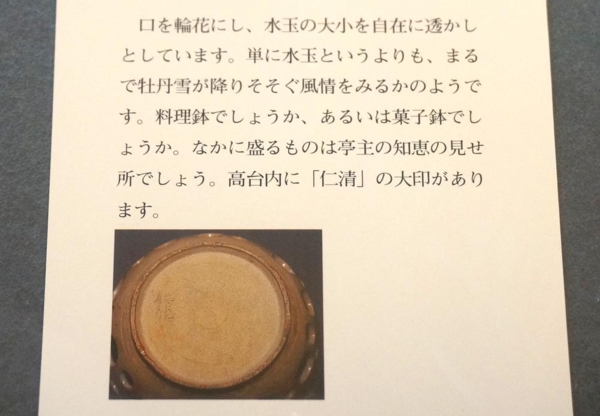 口を輪花にし、水玉の大小を自在に透かし
としています。単に水玉というよりも、まる
で牡丹雪が降りそそぐ風情をみるかのようで
す。料理鉢でしょうか、あるいは菓子鉢でし
ょうか。なかに盛るものは亭主の知恵の見せ
所でしょう。高台内に「仁清」の大印があり
ます。